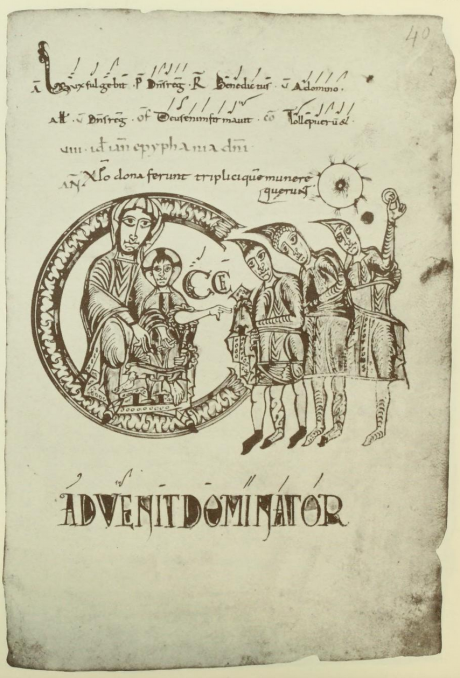 40
Lux fulgebit · P Dns reg · R Benedictus · V A domino ·
All · V Dns reg · Of Deus enim firmavit · Co Tolle puerū &
VIII · id ian epyphania dni
AN Xpo dona ferunt triplici que munere
querunt
CCE
ADVENIT DOMINATOR